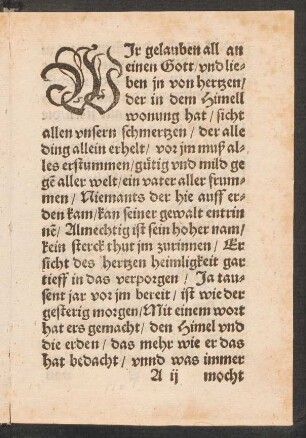 WIr gelauben all an
einen Gott/ vnd lie-
ben jn von hertzen/
der in dem Himell
wonung hat/ sicht
allen vnsern schmertzen/ der alle
ding allein erhelt/ vor jm muß al-
les erstummen/ gütig vnd mild ge
gē aller welt/ ein vater aller frum-
men/ Niemants der hie auff er-
den kam/ kan seiner gewalt entrin
nē/ Almechtig ist sein hoher nam/
kein sterck thut jm zurinnen/ Er
sicht des hertzen heimligkeit gar
tieff in das verporgen/ Ja tau-
sent jar vor jm bereit/ ist wie der
gesterig morgen/ Mit einem wort
hat ers gemacht/ den Himel vnd
die erden/ das mehr wie er das
hat bedacht/ vnnd was immer
A ij mocht